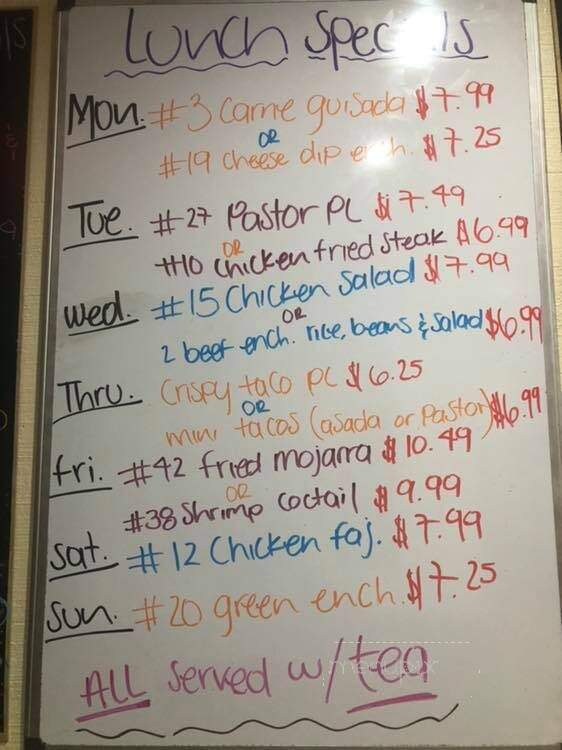 Lunch Specials
Mon. #3 Carne guisada $7.99
OR
#19 cheese dip ench. $7.25
Tue. #27 Pastor PL $7.49
OR
#10 Chicken fried Steak $6.99
wed. #15 Chicken Salad $7.99
OR
2 beef ench. rice, beans & salad $6.99
Thru. Crispy taco PL $6.25
OR
mini tacos (asada or Pastor) $6.99
fri. #42 fried mojarra $10.49
OR
#38 Shrimp coctail $9.99
sat. #12 Chicken faj. $7.99
sun. #20 green ench. $7.25
ALL served w/tea
menupix